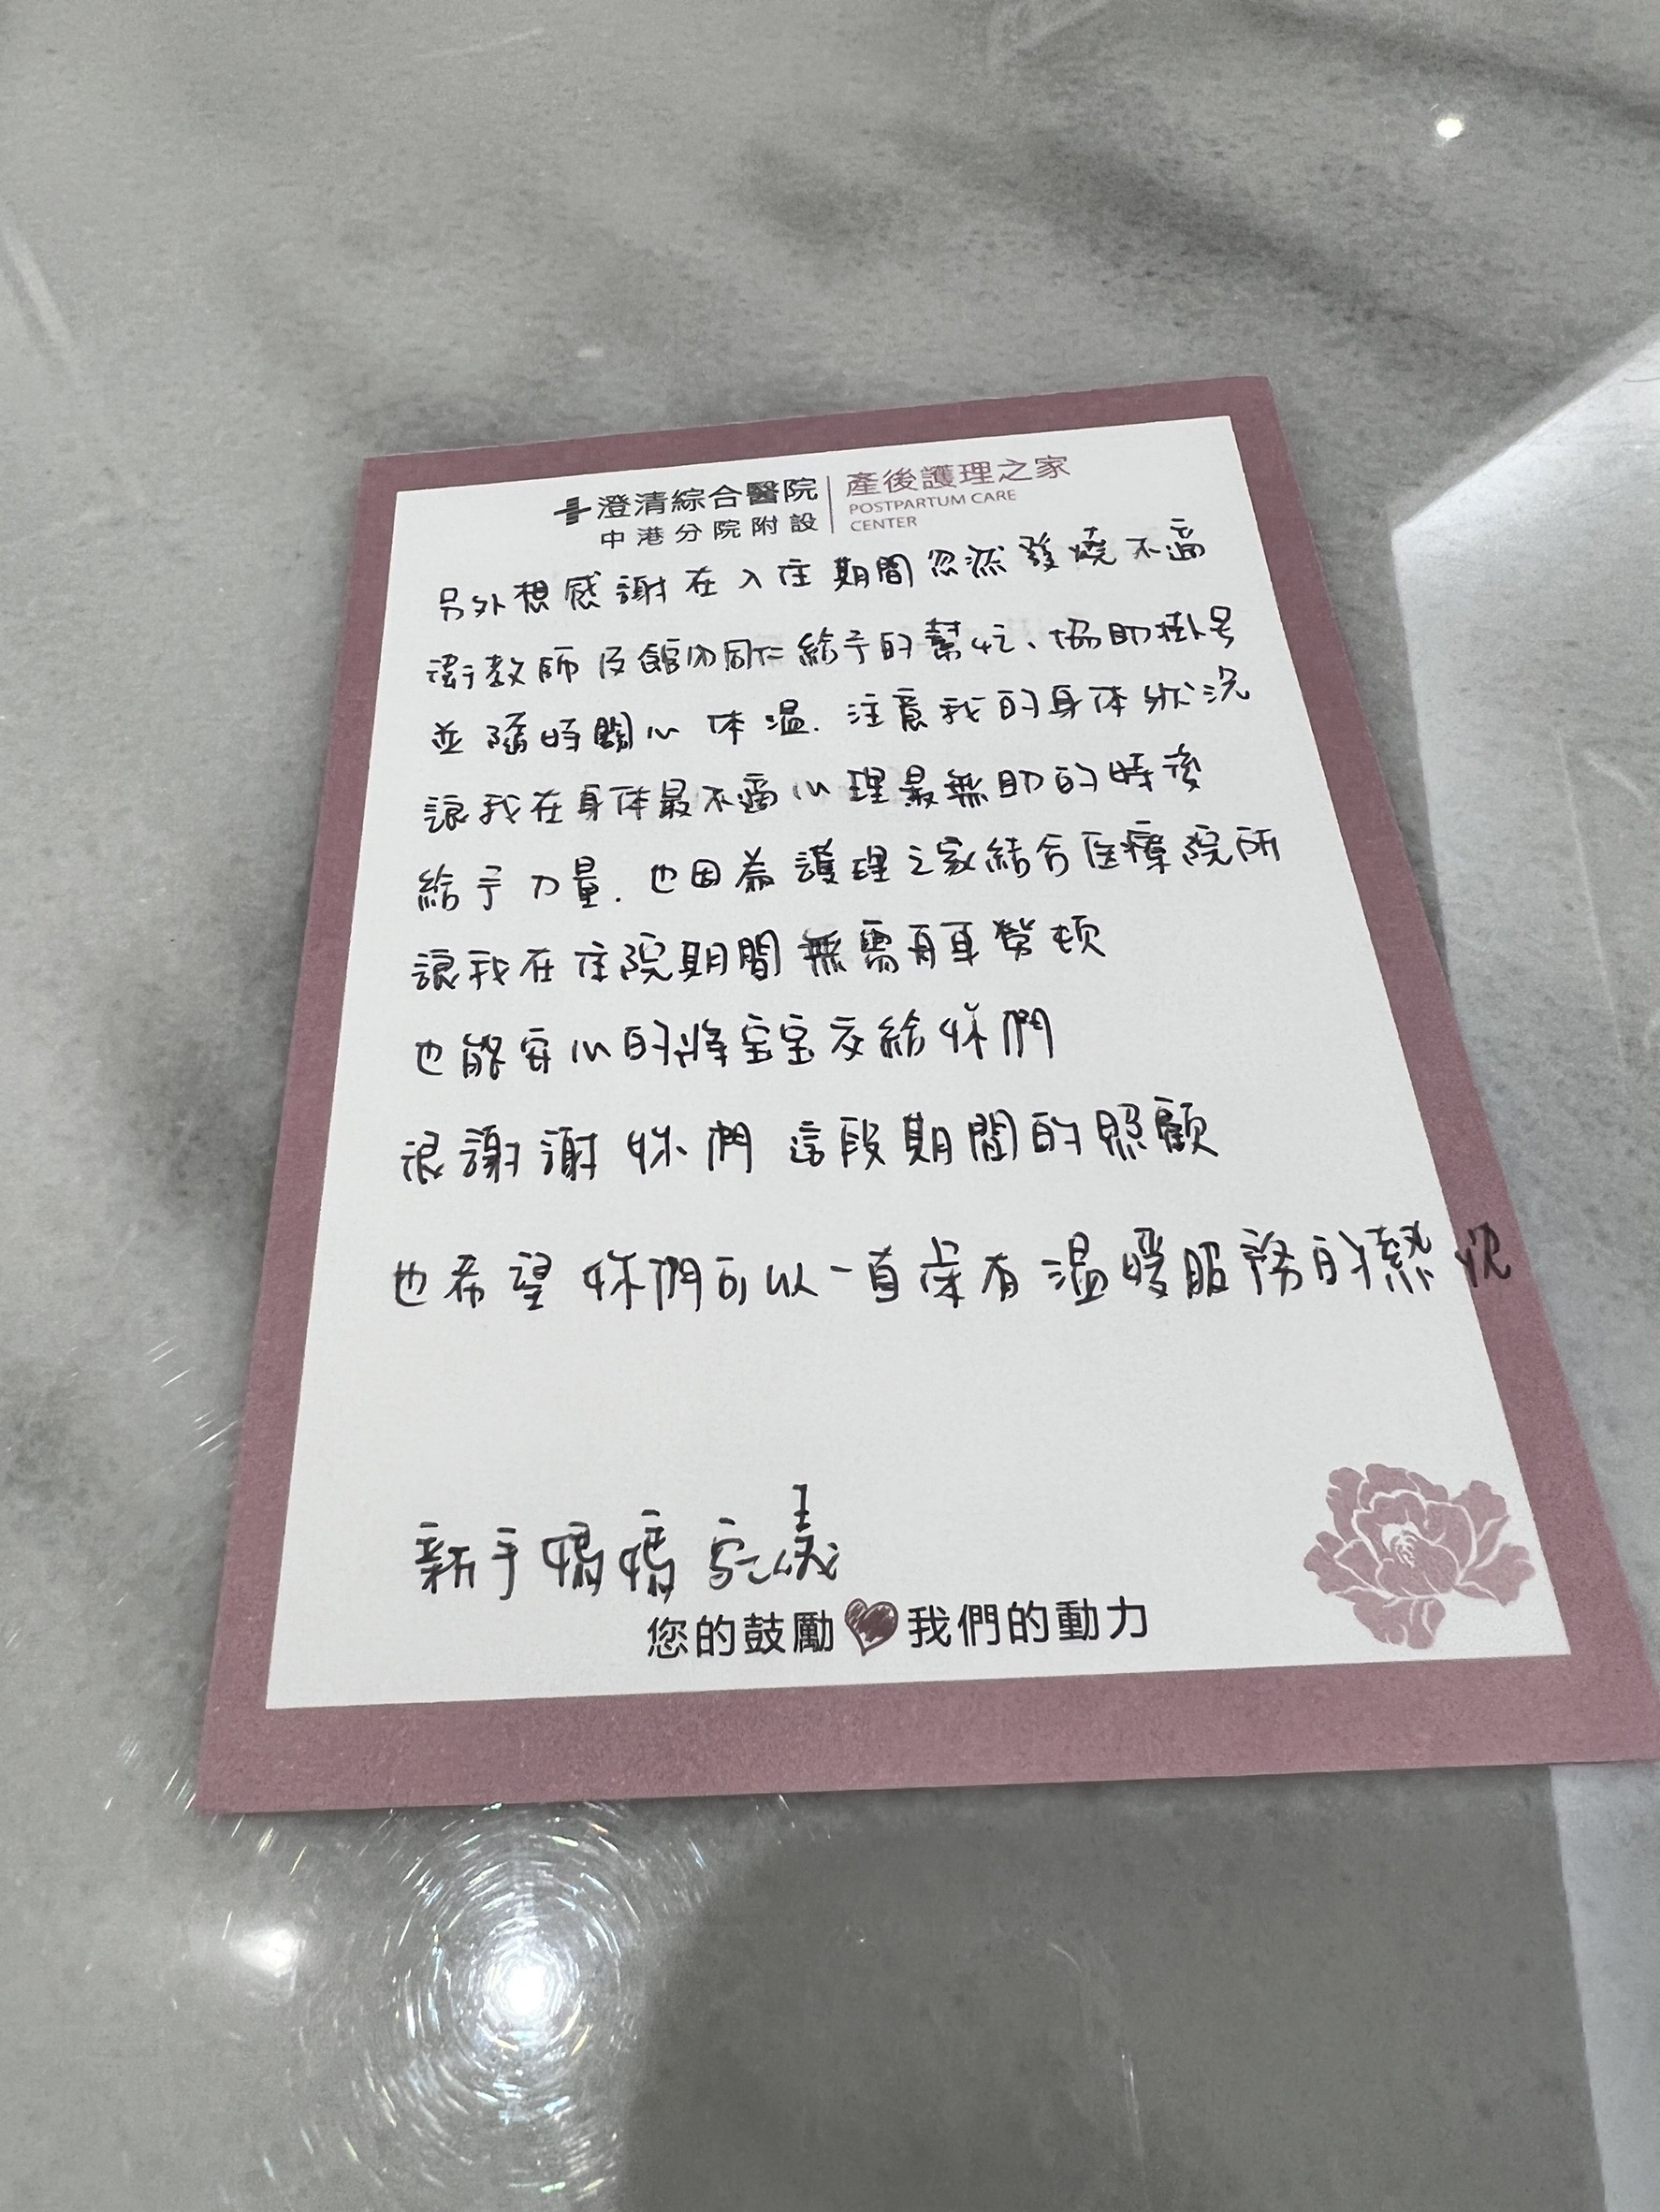 澄清綜合醫院
中港分院附設
產後護理之家
POSTPARTUM CARE
CENTER
另外想感謝在入住期間忽然發燒不適
衛教師及館內同仁給予的幫忙、協助掛号
並隨時關心体溫.注意我的身体狀況
讓我在身体最不適心理最無助的時後
給予力量.也因為護理之家結合医療院所
讓我在住院期間無需舟車勞頓
也能安心的將宝宝交給妳們
很謝謝妳們這段期間的照顧
也希望妳們可以一直保有溫暖服務的熱忱
新手媽媽
您的鼓勵 我們的動力